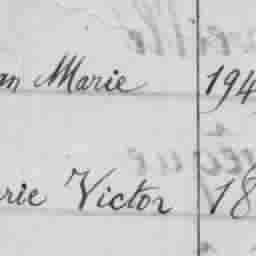 an Marie 194
rie Victor 18